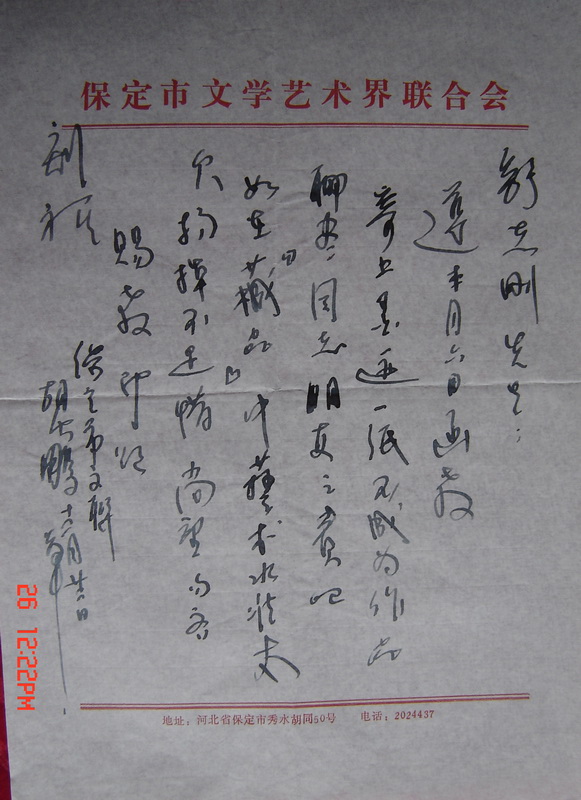 保定市文学艺术界联合会
舒志刚先生：
遵本月六日函教
寄上墨迹一纸不成为作品
聊作同志朋友之賓吧
如在“藏品”中藝术水准太
欠扬择不足惜尚望勿吝
赐教即颂
刻祺
保定市文联
胡
十六月廿六日
地址：河北省保定市秀水胡同50号 电话：2024437
26 12:22PM